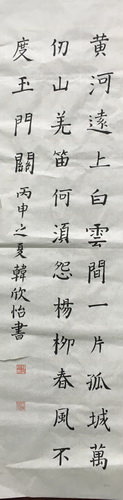 黄河遠上白雲間一片孤城萬
仞山羌笛何須怨楊柳春風不
度玉門關丙申之夏韓欣怡書